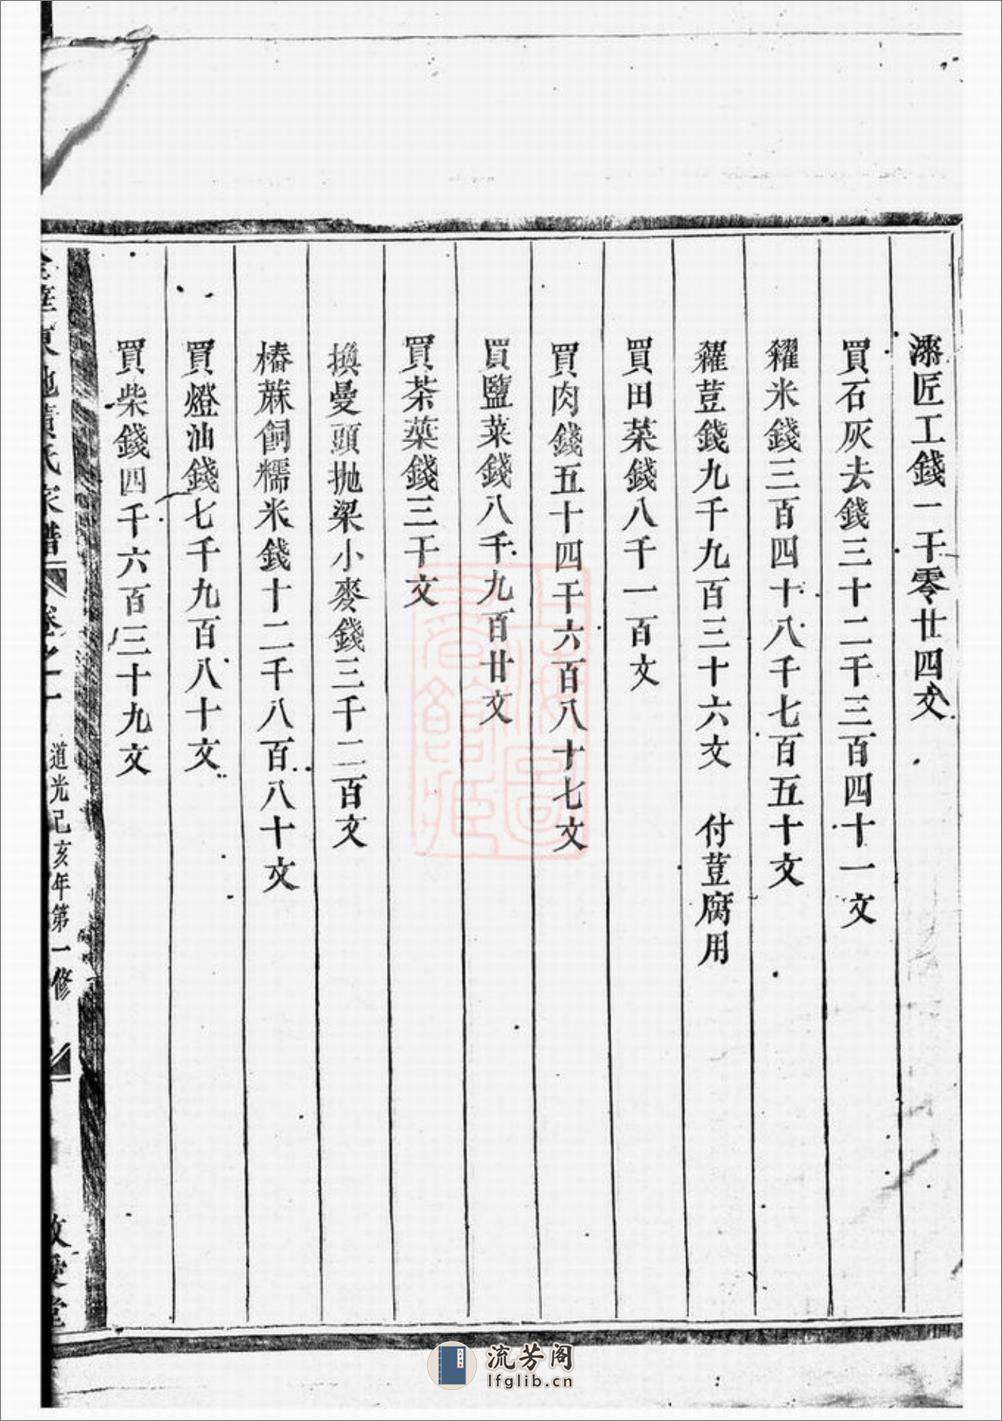 漆匠工錢一千零廿四文
買石灰去錢三十二千三百四十一文
糴米錢三百四十八千七百五十文
糴荳錢九千九百三十六文 付荳腐用
買田菜錢八千一百文
買肉錢五十四千六百八十七文
買鹽菜錢八千九百廿文
買茶葉錢三千文
換曼頭抛梁小麥錢三千二百文
樁蔴餇糯米錢十二千八百八十文
買燈油錢七千九百八十文
買柴錢四千六百三十九文
金華東池黄氏家譜 卷之一 道光己亥年第一修 敬愛堂
上海圖書館藏
流芳阁
lfglib.cn